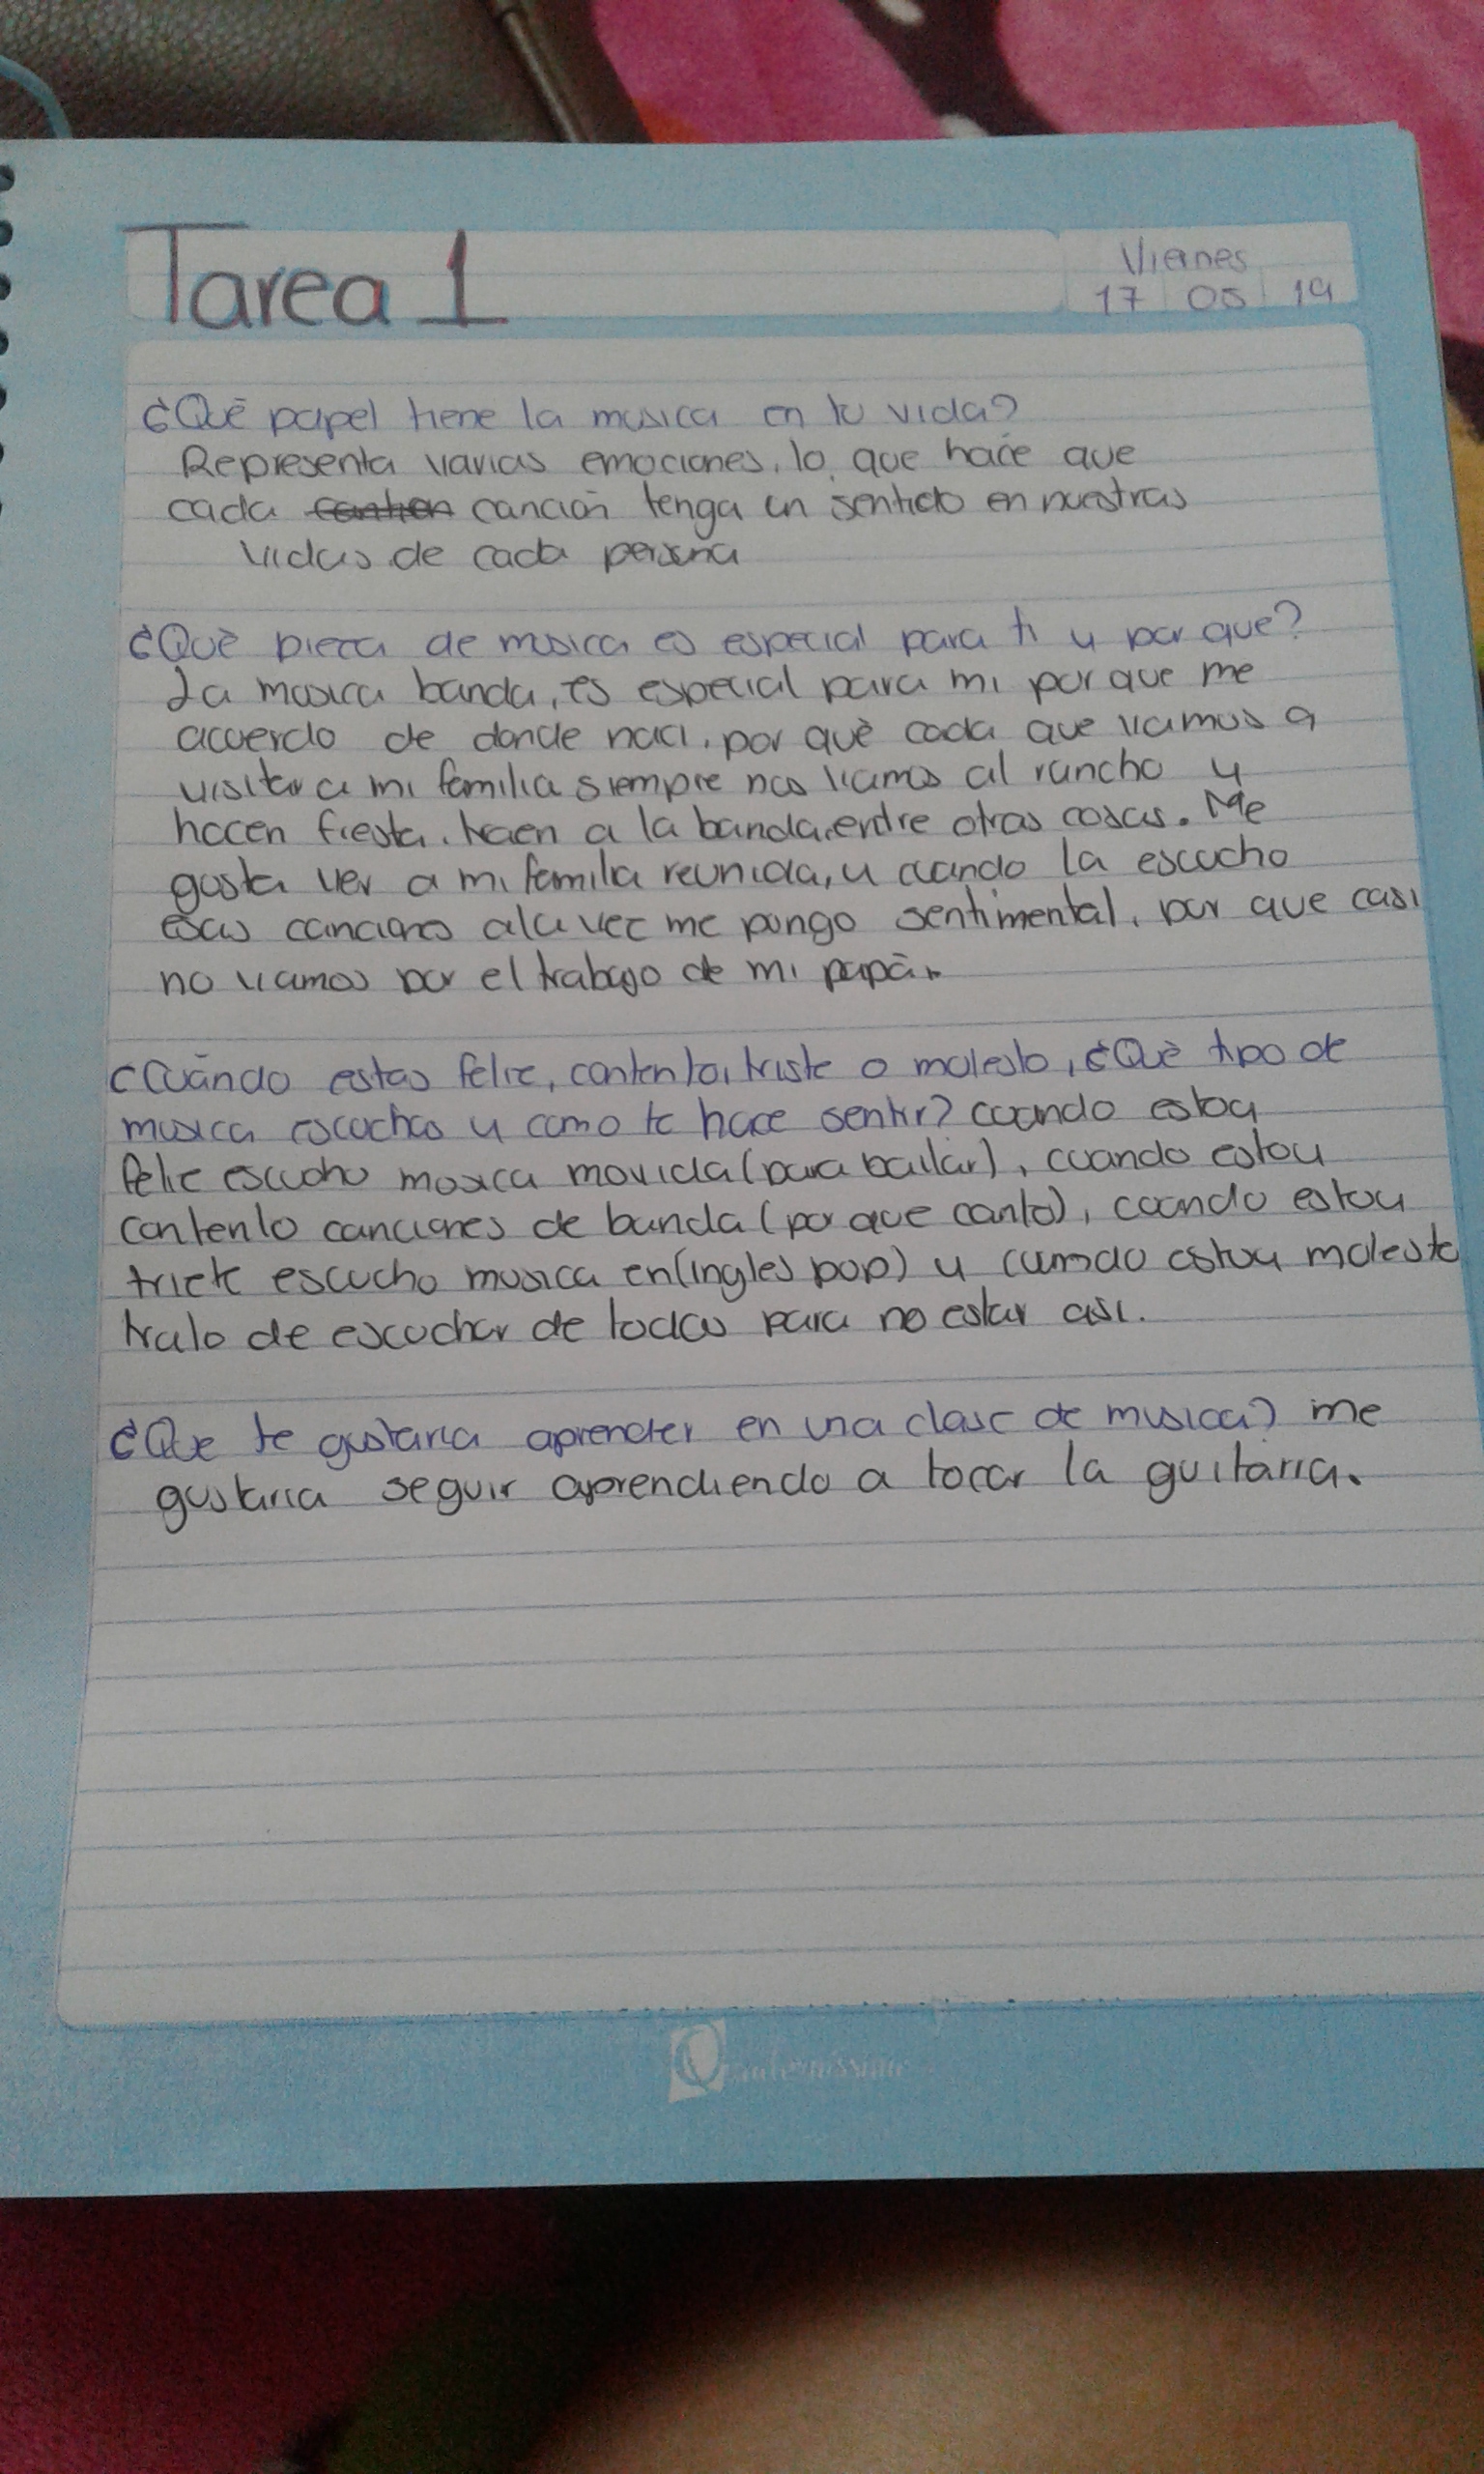 Tarea 1
Viernes
17 05 19
¿Qué papel tiene la musica en tu vida?
Representa varias emociones, lo que hace que
cada canción tenga un sentido en nuestras
vidas de cada persona
¿Qué pieza de musica es especial para ti y por que?
La musica banda, es especial para mi por que me
acuerdo de donde naci, por qué cada que vamos a
visitar a mi familia siempre nos vamos al rancho y
hacen fiesta, traen a la banda, entre otras cosas. Me
gusta ver a mi familia reunida, y cuando la escucho
esas canciones ala vez me pongo sentimental, por que casi
no vamos por el trabajo de mi papá.
¿Cuándo estas felize, contento, triste o molesto, ¿Qué tipo de
musica escuchas y como te hace sentir? cuando estoy
felic escucho musica movida (para bailar), cuando estoy
contento canciones de banda (por que canto), cuando estoy
triste escucho musica en (ingles pop) y cuando estoy molesto
trato de escuchar de todas para no estar asi.
¿Que te gustaria aprender en una clase de musica? me
gustaria seguir aprendiendo a tocar la guitarra.